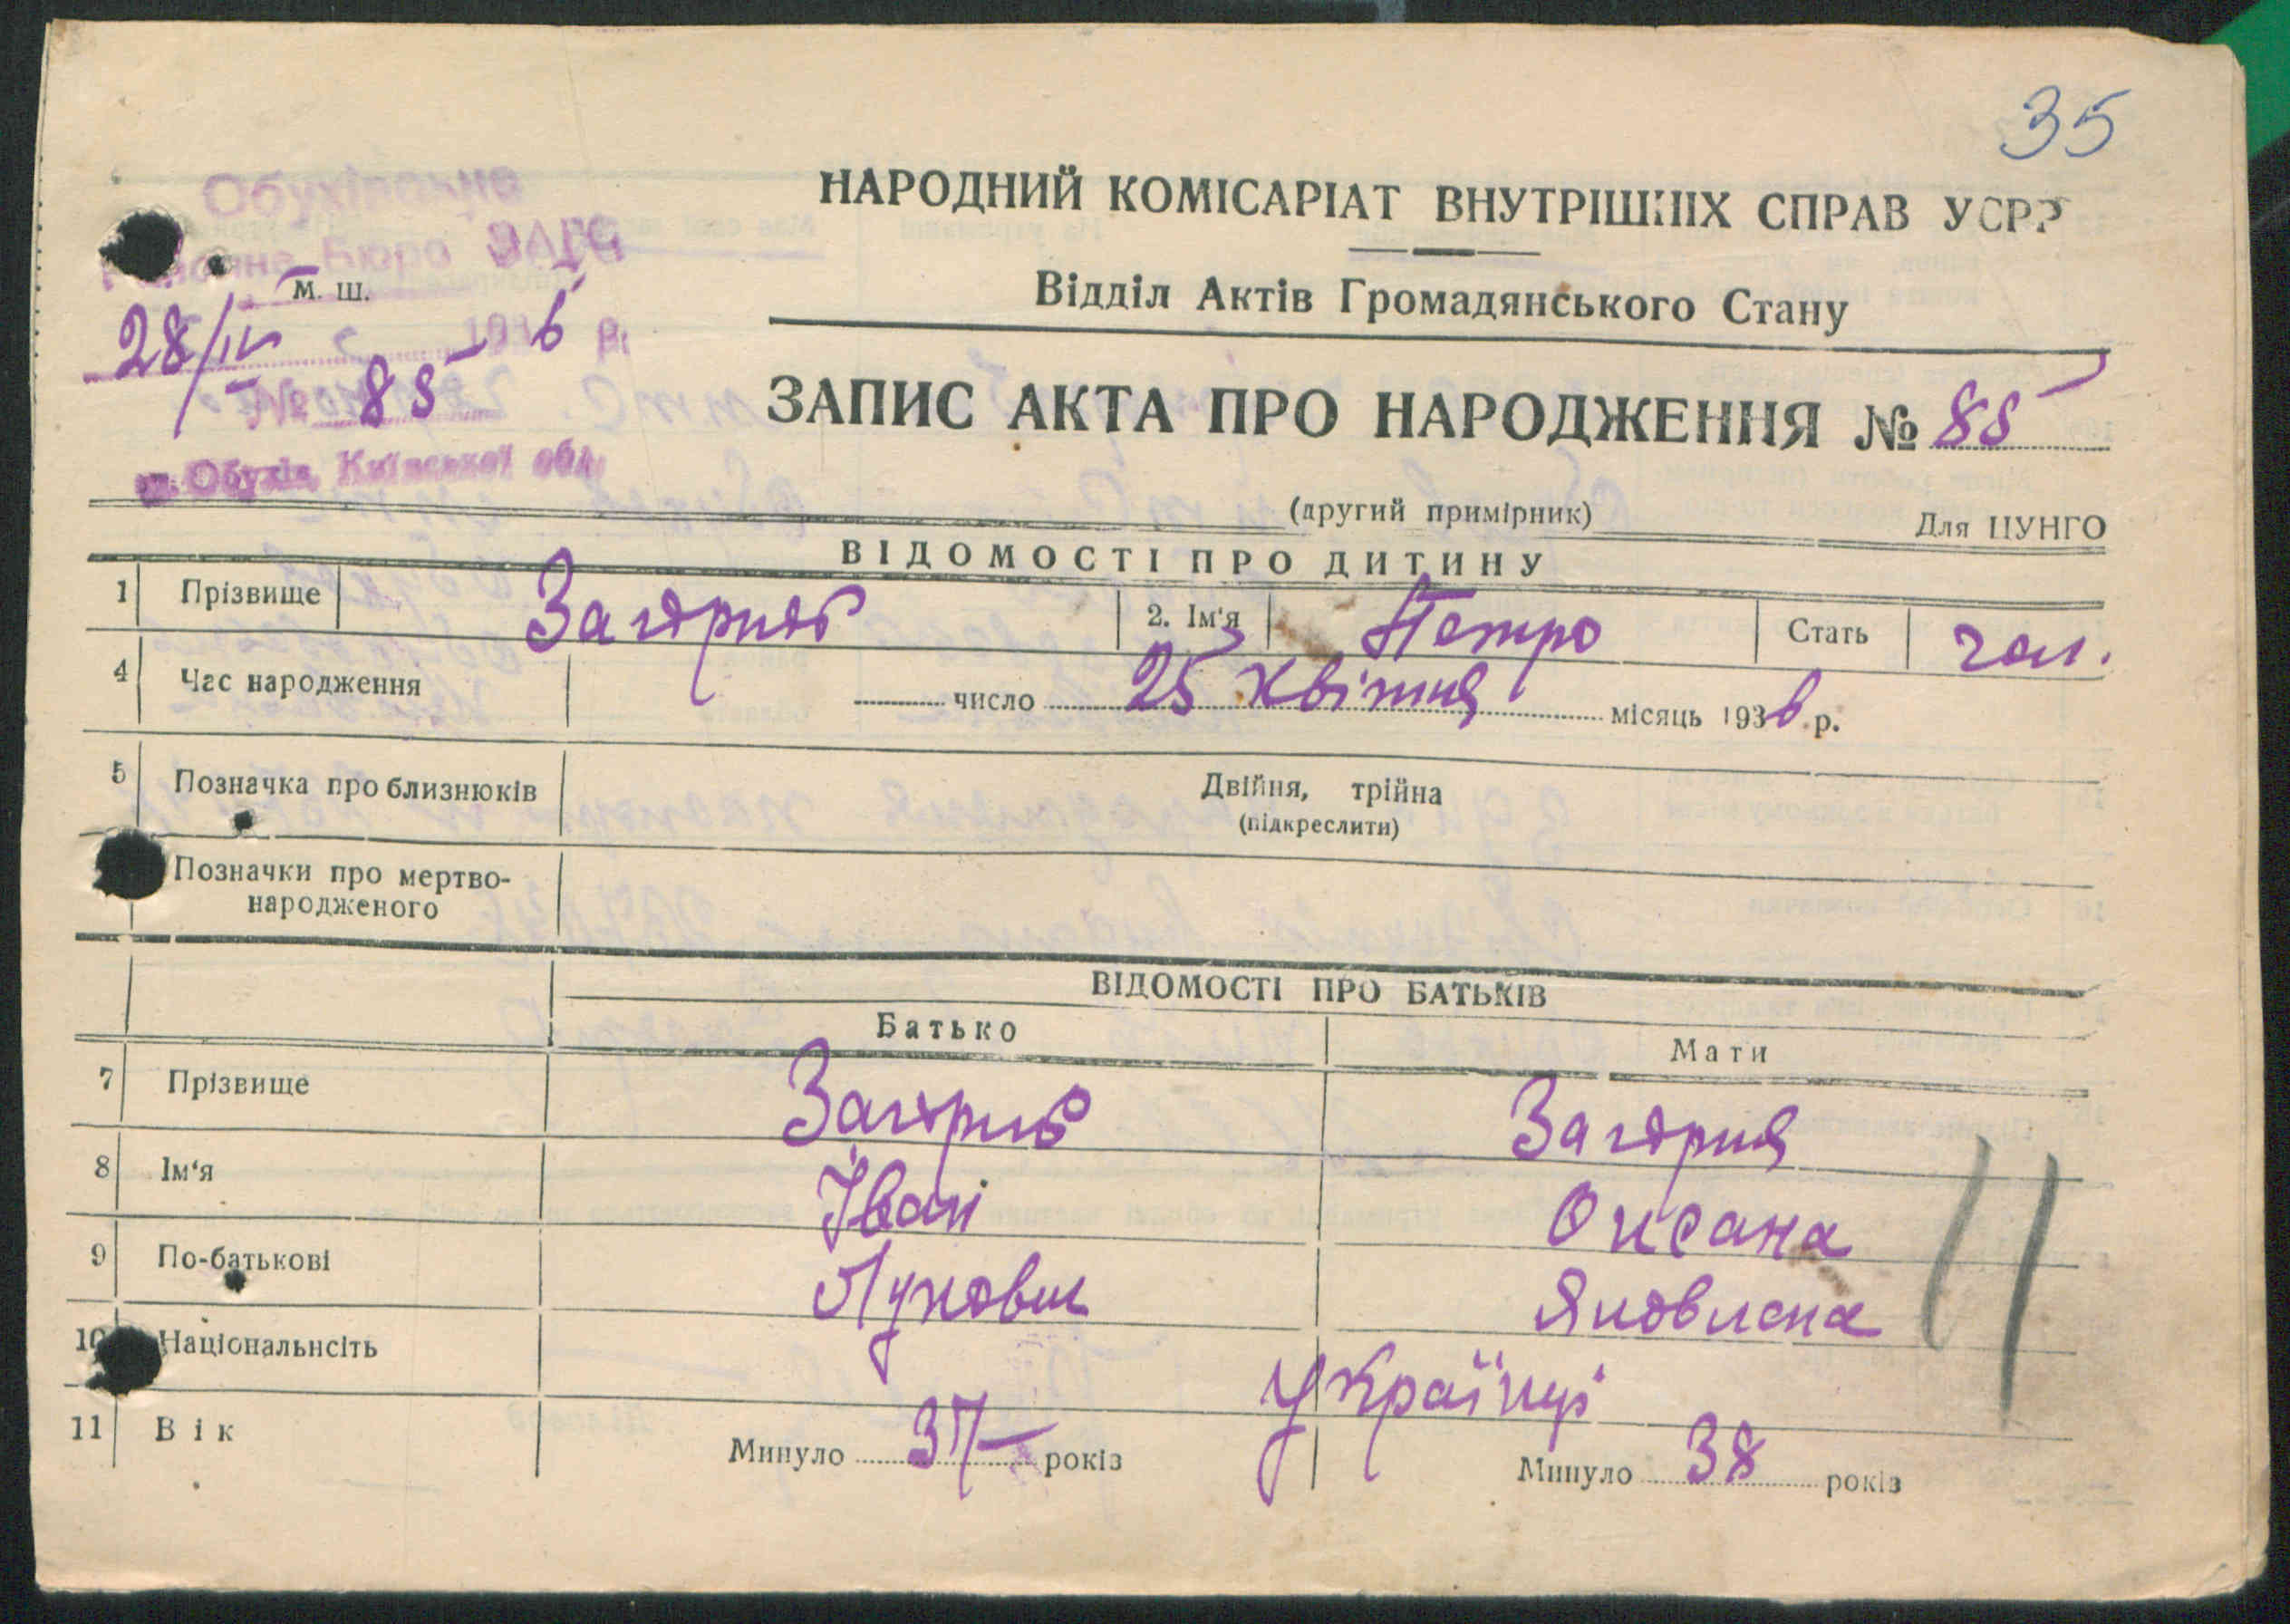 35
Обухівська
Районне Бюро ЗАГС
НАРОДНИЙ КОМІСАРІАТ ВНУТРІШНІХ СПРАВ УСРР
м. ш.
Відділ Актів Громадянського Стану
28/IV 193 6 р.
№ 85
ЗАПИС АКТА ПРО НАРОДЖЕННЯ № 85
м. Обухів, Київської обл.
(другий примірник) Для ЦУНГО
ВІДОМОСТІ ПРО ДИТИНУ
1 Прізвище 2. Ім'я Петро Стать чол.
4 Час народження число 25 квітня місяць 1936 р.
5 Позначка про близнюків Двійня, трійна
(підкреслити)
Позначки про мертво-
народженого
ВІДОМОСТІ ПРО БАТЬКІВ
Батько Мати
7 Прізвище
8 Ім'я Іван Оксана
9 По-батькові Лукович Яковлена
10 Національнсіть Українці
11 Вік Минуло 37 років Минуло 38 років